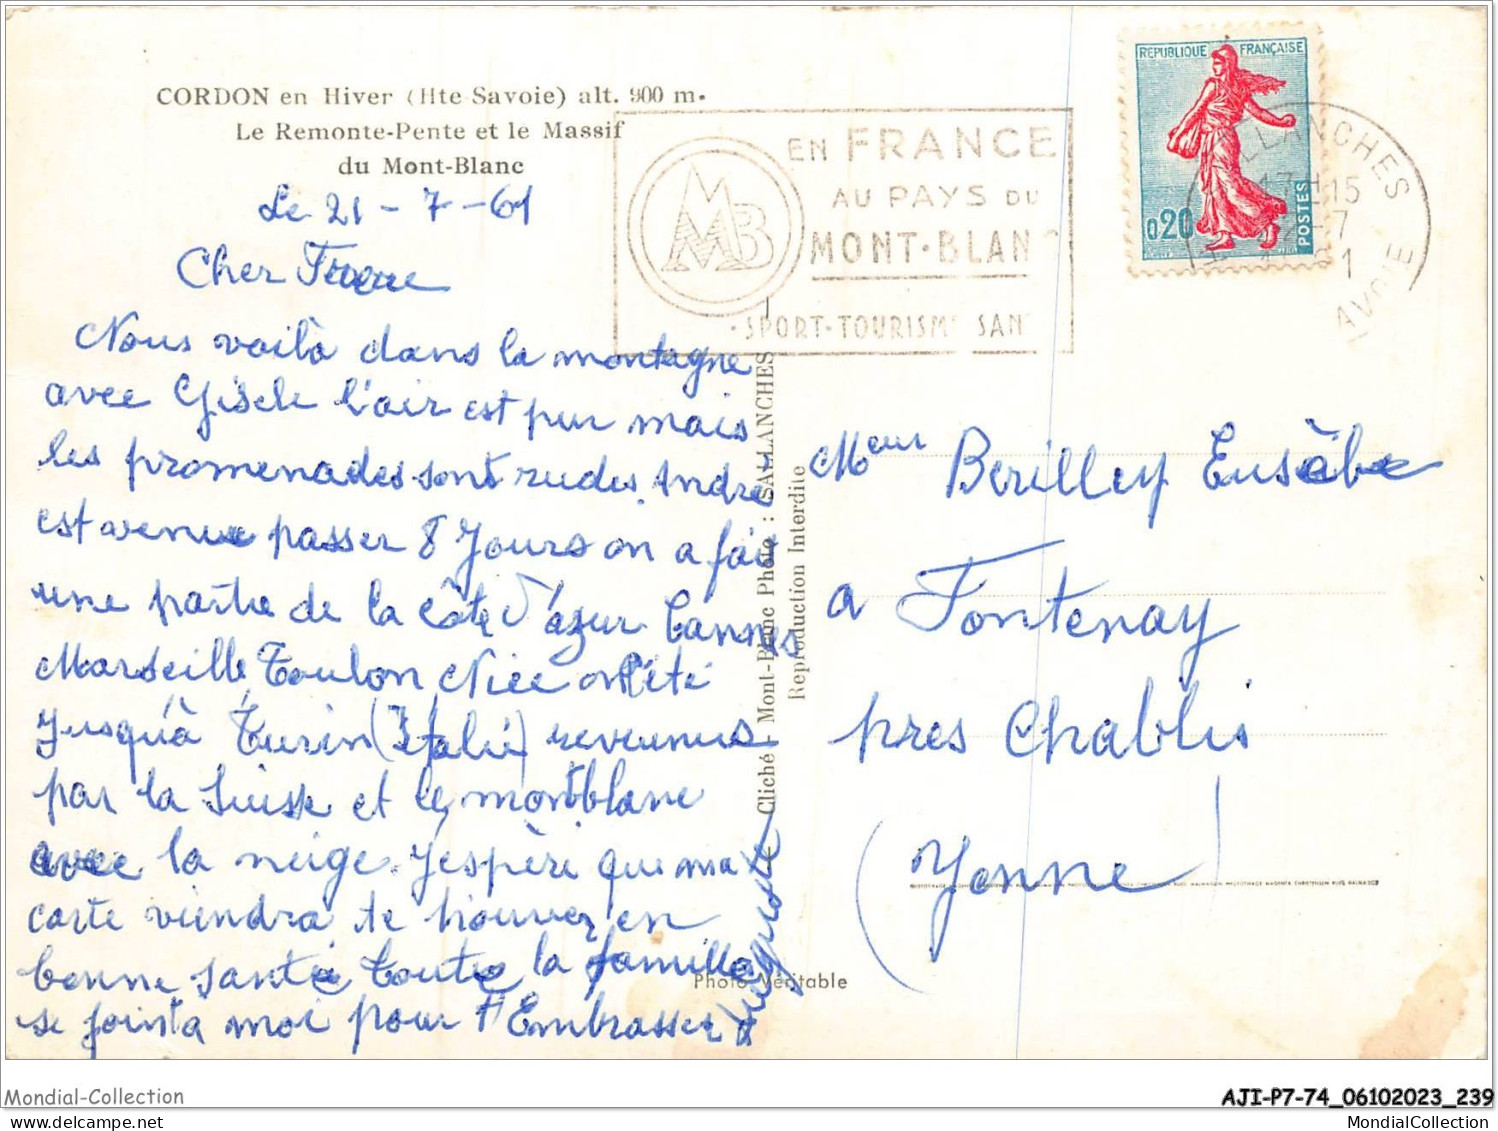 CORDON en Hiver (Hte Savoie) alt. 900 m.
Le Remonte-Pente et le Massif
du Mont-Blanc
Le 21 - 7 - 61
Cher Frere
Nous voilà dans la montagne
avec Gisele l'air est pur mais
les promenades sont rudes. Andre
est venue passer 8 Jours on a fait
une partie de la côte d'azur Cannes
Marseille Toulon Nice on été
Jusqu'à Turin (Italie) revenus
par la Suisse et le montblanc
avec la neige. J'espère que ma
carte viendra te trouver en
bonne santé toute la famille
se joint a moi pour t'Embrasser
Auguste
EN FRANCE
AU PAYS DU
MONT-BLANC
MB
SPORT-TOURISME SAN
REPUBLIQUE FRANÇAISE
0.20
POSTES
LLANCHES
17H15
-7
1
AVOIE
Cliché - Mont-Blanc Photo : SALLANCHES
Reproduction Interdite
Photo Véritable
Meur Berilley Eusèbe
a Fontenay
pres Chablis
(Yonne)
Mondial-Collection
AJI-P7-74_06102023_239
MondialCollection